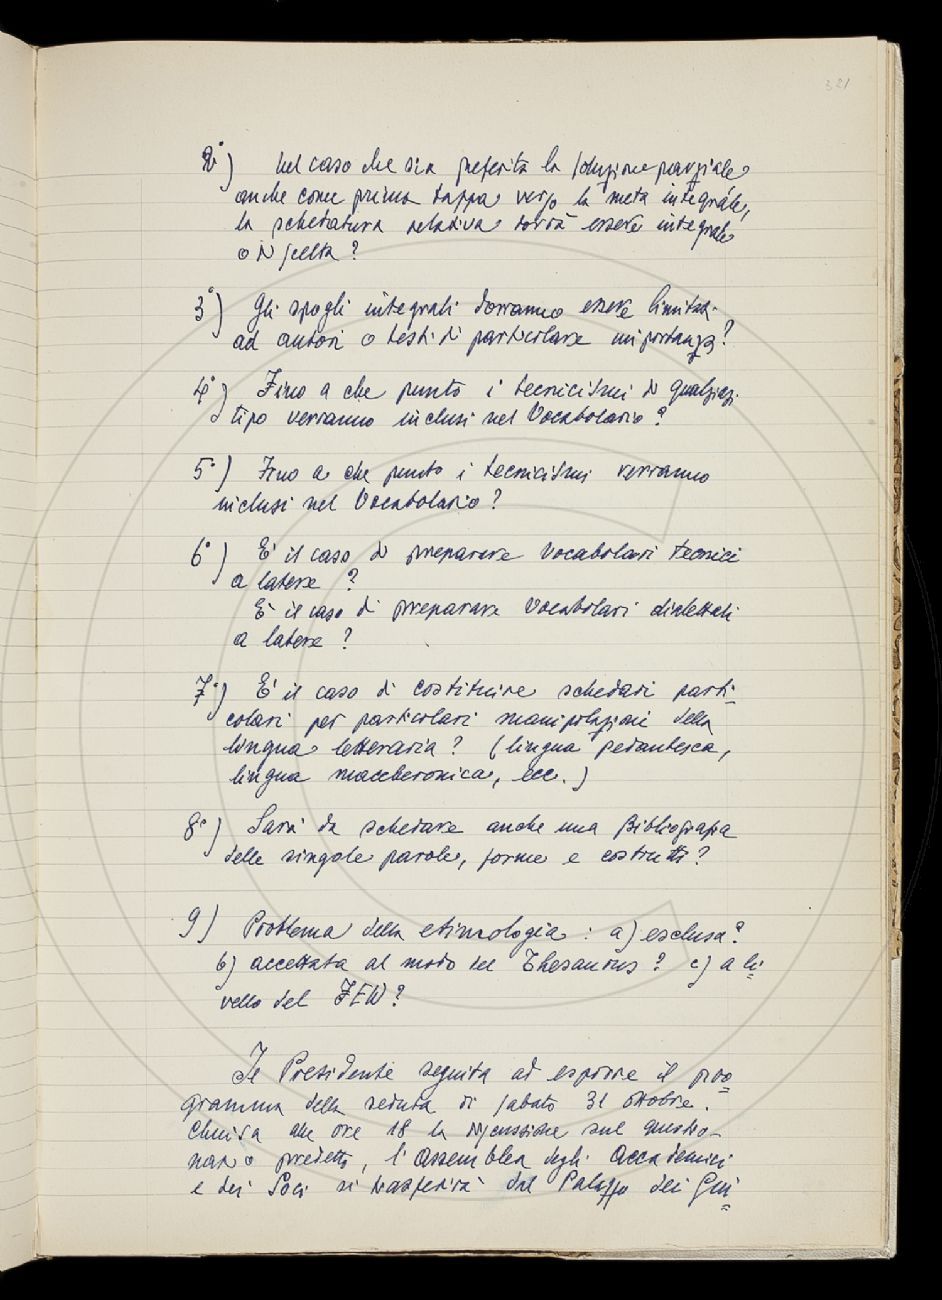 321
2°) nel caso che sia preferita la soluzione parziale
anche come prima tappa verso la meta integrale,
la schedatura relativa dovrà essere integrale
o di scelta?
3°) Gli spogli integrali dovranno essere limitati
ad autori o testi di particolare importanza?
4°) Fino a che punto i tecnicismi di qualsiasi
tipo verranno inclusi nel Vocabolario?
5°) Fino a che punto i tecnicismi verranno
inclusi nel Vocabolario?
6°) E' il caso di preparare Vocabolari tecnici
a latere ?
E' il caso di preparare Vocabolari dialettali
a latere ?
7°) E' il caso di costituire schedari parti-
colari per particolari manipolazioni della
lingua letteraria? (lingua pedantesca,
lingua maccheronica, ecc.)
8°) Sarà da schedare anche una Bibliografia
delle singole parole, forme e costrutti?
9) Problema della etimologia: a) esclusa?
b) accettata al modo del Thesaurus? c) a li=
vello del FEW?
Il Presidente seguita ad esporre il pro=
gramma della seduta di sabato 31 ottobre.
Chiusa alle ore 18 la discussione sul questio-
nario predetto, l'Assemblea degli Accademici
e dei Soci si trasferirà dal Palazzo dei Giu=